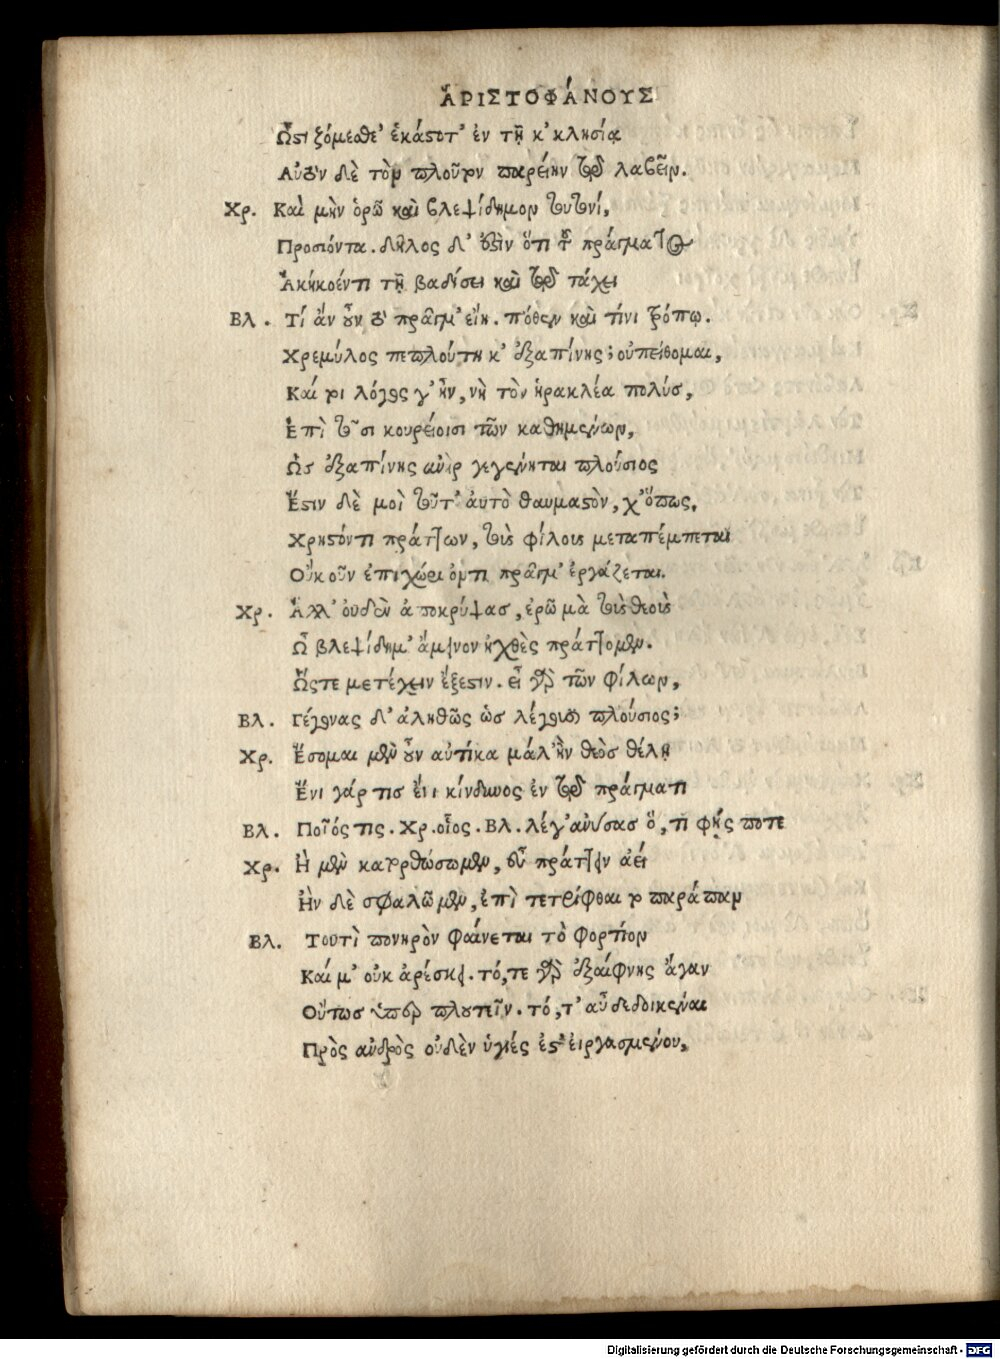 ἈΡΙΣΤΟΦΆΝΟΥΣ
Ὠστιζόμεσθ' ἑκάστοτ' ἐν τῇ κ' κλησίᾳ
Αὐτὸν δὲ τὸν πλοῦτον παρείην τῳ λαβεῖν.
Χρ. Καὶ μὴν ὁρῶ καὶ βλεψίδημον τουτονί,
Προσιόντα. δῆλος δ' ἐστὶν ὅτι τοῦ πράγματος
Ἀκήκοέντι τῇ βαδίσει καὶ τῷ τάχει
Βλ. Τί ἂν οὖν τὸ πρᾶγμ' εἴη. πόθεν καὶ τίνι τρόπῳ.
Χρεμύλος πεπλούτηκ' ἐξαπίνης; οὐ πείθομαι,
Καί τοι λόγος γ' ἦν, νὴ τὸν ἡρακλέα πολύς,
Ἐπὶ τοῖσι κουρείοισι τῶν καθημένων,
Ὡς ἐξαπίνης ἀνὴρ γεγένηται πλούσιος
Ἔστιν δὲ μοὶ τοῦτ' αὐτὸ θαυμαστὸν, χ' ὅπως,
Χρηστόντι πράττων, τοὺς φίλους μεταπέμπεται
Οὔκουν ἐπιχώριόντι πρᾶγμ' ἐργάζεται.
Χρ. Ἀλλ' οὐδὲν ἀποκρύψας, ἐρῶ μὰ τοὺς θεοὺς
Ὦ βλεψίδημ' ἄμεινον ἢ χθὲς πράττομεν.
Ὥστε μετέχειν ἔξεστιν. εἶ γὰρ τῶν φίλων,
Βλ. Γέγονας δ' ἀληθῶς ὡς λέγουσι πλούσιος;
Χρ. Ἔσομαι μὲν οὖν αὐτίκα μάλ' ἢν θεὸς θέλῃ
Ἔνι γάρ τις ἔνι κίνδυνος ἐν τῷ πράγματι
Βλ. Ποῖός τις. Χρ. οἷος. Βλ. λέγ' ἀνύσας ὅ, τι φῄς ποτε
Χρ. Ἢ μὲν κατορθώσωμεν, εὖ πράττειν ἀεί
Ἢν δὲ σφαλῶμεν, ἐπὶ τετρίφθαι το παράπαν
Βλ. Τουτὶ πονηρὸν φαίνεται τὸ φορτίον
Καί μ' οὐκ ἀρέσκει. τό, τε γὰρ ἐξαίφνης ἄγαν
Οὕτως ὑπερ πλουτεῖν. τό, τ' αὖ δεδοικέναι
Πρὸς ἀνδρὸς οὐδὲν ὑγιές ἐστ' εἰργασμένου,
Digitalisierung gefördert durch die Deutsche Forschungsgemeinschaft - DFG